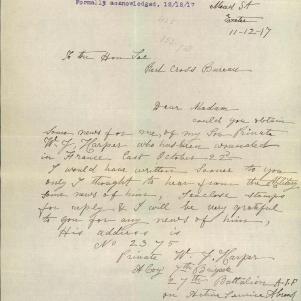 Formally acknowledged, 18/12/17
Mead St
Exeter
11-12-17
To the Hon Sec
Red Cross Bureau
Dear Madam
could you obtain
some news for me, of my Son Private
W. J. Harper who has been wounded
in France last October
I would have written sooner to you
only I thought to hear from the Military
some news of him, I enclose stamps
for reply & I will be very grateful
to you for any news of him,
His address is
No 2375
Private W. J. Harper
A Coy 7th Brigade
27th Battalion A.I.F
on Active Service Abroad